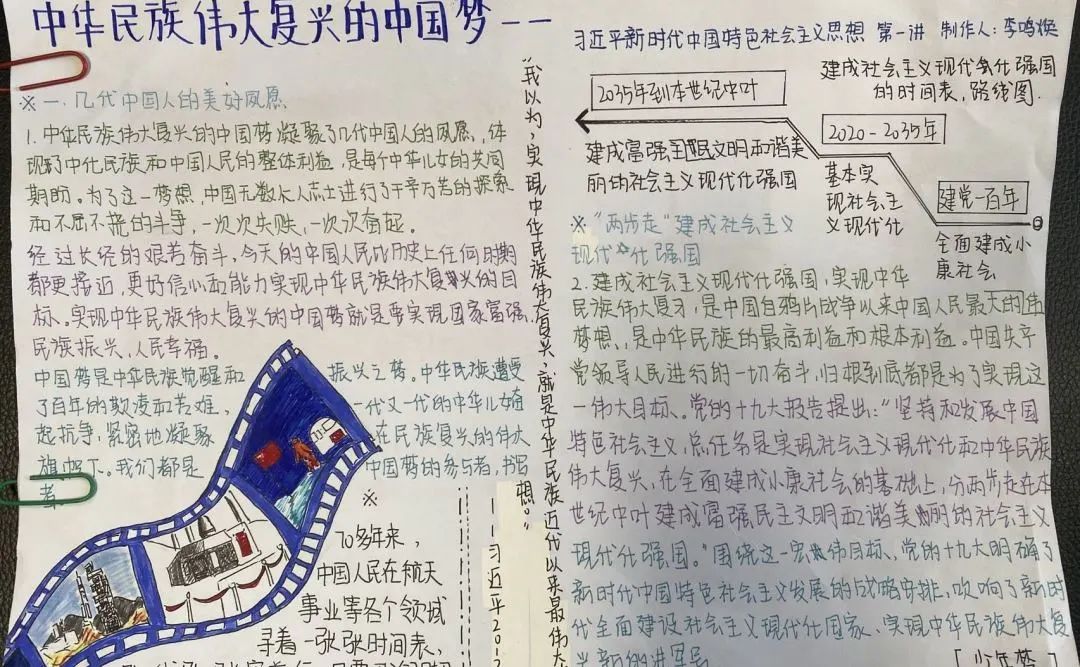 中华民族伟大复兴的中国梦——
※一、几代中国人的美好夙愿
1.中华民族伟大复兴的中国梦凝聚了几代中国人的夙愿,体
现了中化民族和中国人民的整体利益,是每个中华儿女的共同
期盼。为了这一梦想,中国无数仁人志士进行了千辛万苦的探索
和不屈不挠的斗争,一次次失败,一次次奋起。
经过长经的艰苦奋斗,今天的中国人民比历史上任何时期
都更接近,更好信心和能力实现中华民族伟大复兴的目
标。实现中华民族伟大复兴的中国梦就是要实现国家富强,
民族振兴,人民幸福。
中国梦是中华民族觉醒和振兴之梦。中华民族遭受
了百年的欺凌和苦难,一代又一代的中华儿女奋
起抗争,紧密地凝聚在民族复兴的伟大
旗帜下。我们都是中国梦的参与者,书写
者
※
70多年来,
中国人民在航天
事业等各个领域
寻着一张张时间表,
"我以为,实现中华民族伟大复兴,就是中华民族近代以来最伟大
想。"
——习近平20
习近平新时代中国特色社会主义思想 第一讲 制作人:李鸣焕
建成社会主义现代化强国
的时间表,路线图.
2035年到本世纪中叶
建成富强民主文明和谐美
丽的社会主义现代化强国
2020-2035年
基本实
现社会主
义现代化
建党一百年
全面建成小
康社会
※"两步走"建成社会主义
现代化强国
2.建成社会主义现代化强国,实现中华
民族伟大复兴,是中国自鸦片战争以来中国人民最大的伟
梦想、是中华民族的最高利益和根本利益。中国共产
党领导人民进行的一切奋斗,归根到底都是为了实现这
一伟大目标。党的十九大报告提出:"坚持和发展中国
特色社会主义,总任务是实现社会主义现代化和中华民族
伟大复兴,在全面建成小康社会的基础上,分两步走在本
世纪中叶建成富强民主文明和谐美丽的社会主义
现代化强国。"围绕这一宏伟目标、党的十九大明确了
新时代中国特色社会主义发展的战略安排,吹响了新时
代全面建设社会主义现代化国家、实现中华民族伟大复
兴新的进军号
「少年梦」